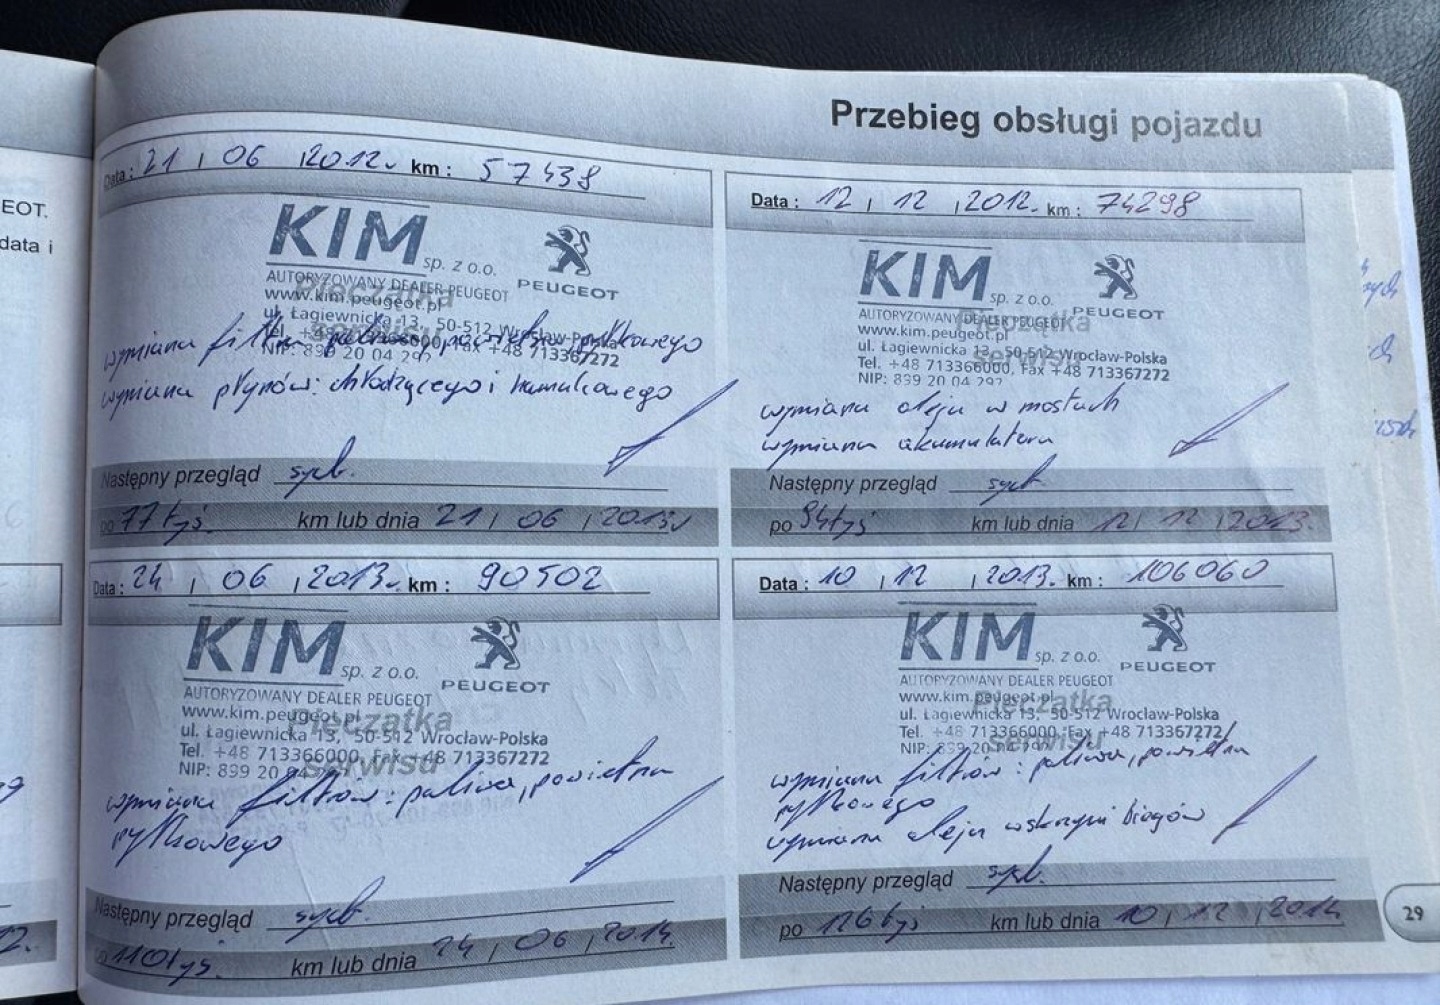 EOT.
data i
Przebieg obsługi pojazdu
Data : 21 / 06 / 2012. km : 57438
KIM sp. z o.o.
PEUGEOT
AUTORYZOWANY DEALER PEUGEOT
Pieczątka
www.kim.peugeot.pl
serwisu
ul. Łagiewnicka 13, 50-512 Wrocław-Polska
Tel. +48 713366000, Fax +48 713367272
NIP: 899 20 04 292
wymiana filtrów paliwa, powietrza, pyłkowego
wymiana płynów: chłodzącego i hamulcowego
Następny przegląd
po 77 tyś. km lub dnia 21 / 06 / 2013
Data : 12 / 12 / 2012. km : 74298
KIM sp. z o.o.
PEUGEOT
AUTORYZOWANY DEALER PEUGEOT
Pieczątka
www.kim.peugeot.pl
serwisu
ul. Łagiewnicka 13, 50-512 Wrocław-Polska
Tel. +48 713366000, Fax +48 713367272
NIP: 899 20 04 292
wymiana oleju w mostach
wymiana akumulatora
Następny przegląd
po 94 tyś km lub dnia 12 / 12 / 2013.
Data : 24 / 06 / 2013. km : 90502
KIM sp. z o.o.
PEUGEOT
AUTORYZOWANY DEALER PEUGEOT
www.kim.peugeot.pl
Pieczątka
ul. Łagiewnicka 13, 50-512 Wrocław-Polska
Tel. +48 713366000, Fax +48 713367272
serwisu
NIP: 899 20 04
wymiana filtrów: paliwa, powietrza
pyłkowego
Następny przegląd
110 tyś. km lub dnia 24 / 06 / 2014.
Data : 10 / 12 / 2013. km : 106060
KIM sp. z o.o.
PEUGEOT
AUTORYZOWANY DEALER PEUGEOT
www.kim.peugeot.pl
Pieczątka
ul. Łagiewnicka 13, 50-512 Wrocław-Polska
Tel. +48 713366000, Fax +48 713367272
serwisu
NIP: 899 20 04
wymiana filtrów: paliwa, powietrza
pyłkowego
wymiana oleju w skrzyni biegów
Następny przegląd
po 126 tyś km lub dnia 10 / 12 / 2014
29